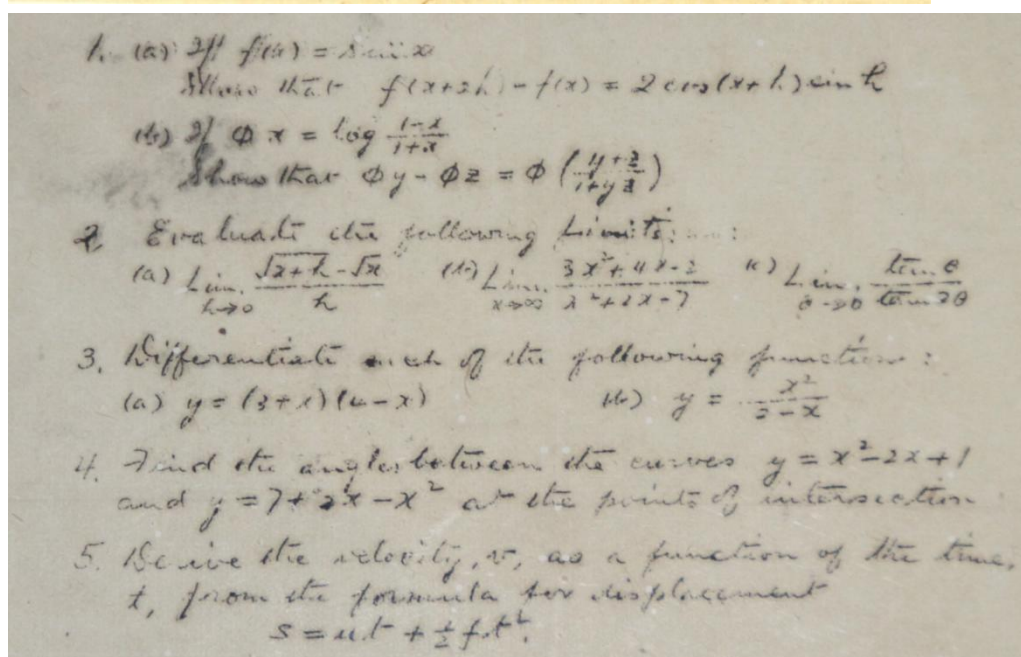 1. (a) If f(x) = sin x
Show that f(x+2h) - f(x) = 2 cos(x+h) sin h
(b) If Φ x = log (1-x)/(1+x)
Show that Φy - Φz = Φ ((y+z)/(1+yz))
2. Evaluate the following Limits:
(a) Lim h→0 (√(x+h) - √x)/h (b) Lim x→∞ (3x²+4x-2)/(x²+2x-7) (c) Lim θ→0 tan θ/tan 2θ
3. Differentiate each of the following functions:
(a) y = (3+x)(4-x) (b) y = x²/(2-x)
4. Find the angles between the curves y = x²-2x+1
and y = 7+2x-x² at the points of intersection
5. Derive the velocity, v, as a function of the time,
t, from the formula for displacement
s = ut + ½ft².